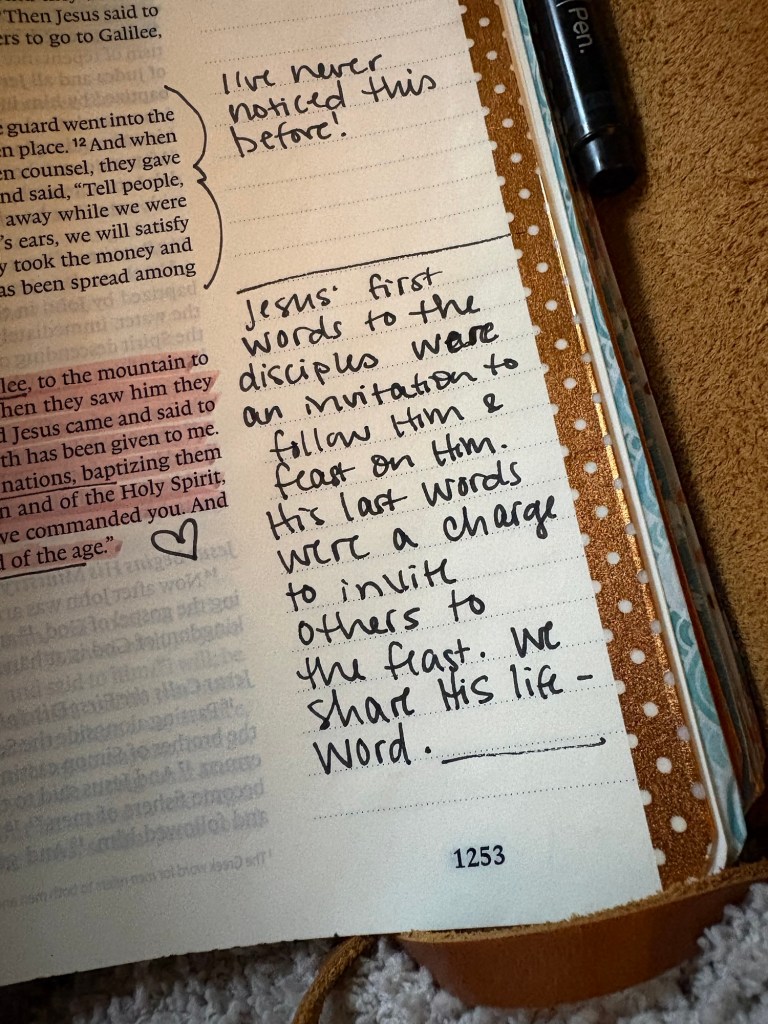 "Then Jesus said to
ers to go to Galilee,
e guard went into the
en place. 12 And when
en counsel, they gave
nd said, "Tell people,
away while we were
's ears, we will satisfy
y took the money and
as been spread among
lee, to the mountain to
hen they saw him they
d Jesus came and said to
th has been given to me.
nations, baptizing them
n and of the Holy Spirit,
ve commanded you. And
d of the age."
I've never
noticed this
before!
Jesus' first
words to the
disciples were
an invitation to
follow Him &
feast on Him.
His last words
were a charge
to invite
others to
the feast. We
share His life-
word.
1253
Pen.